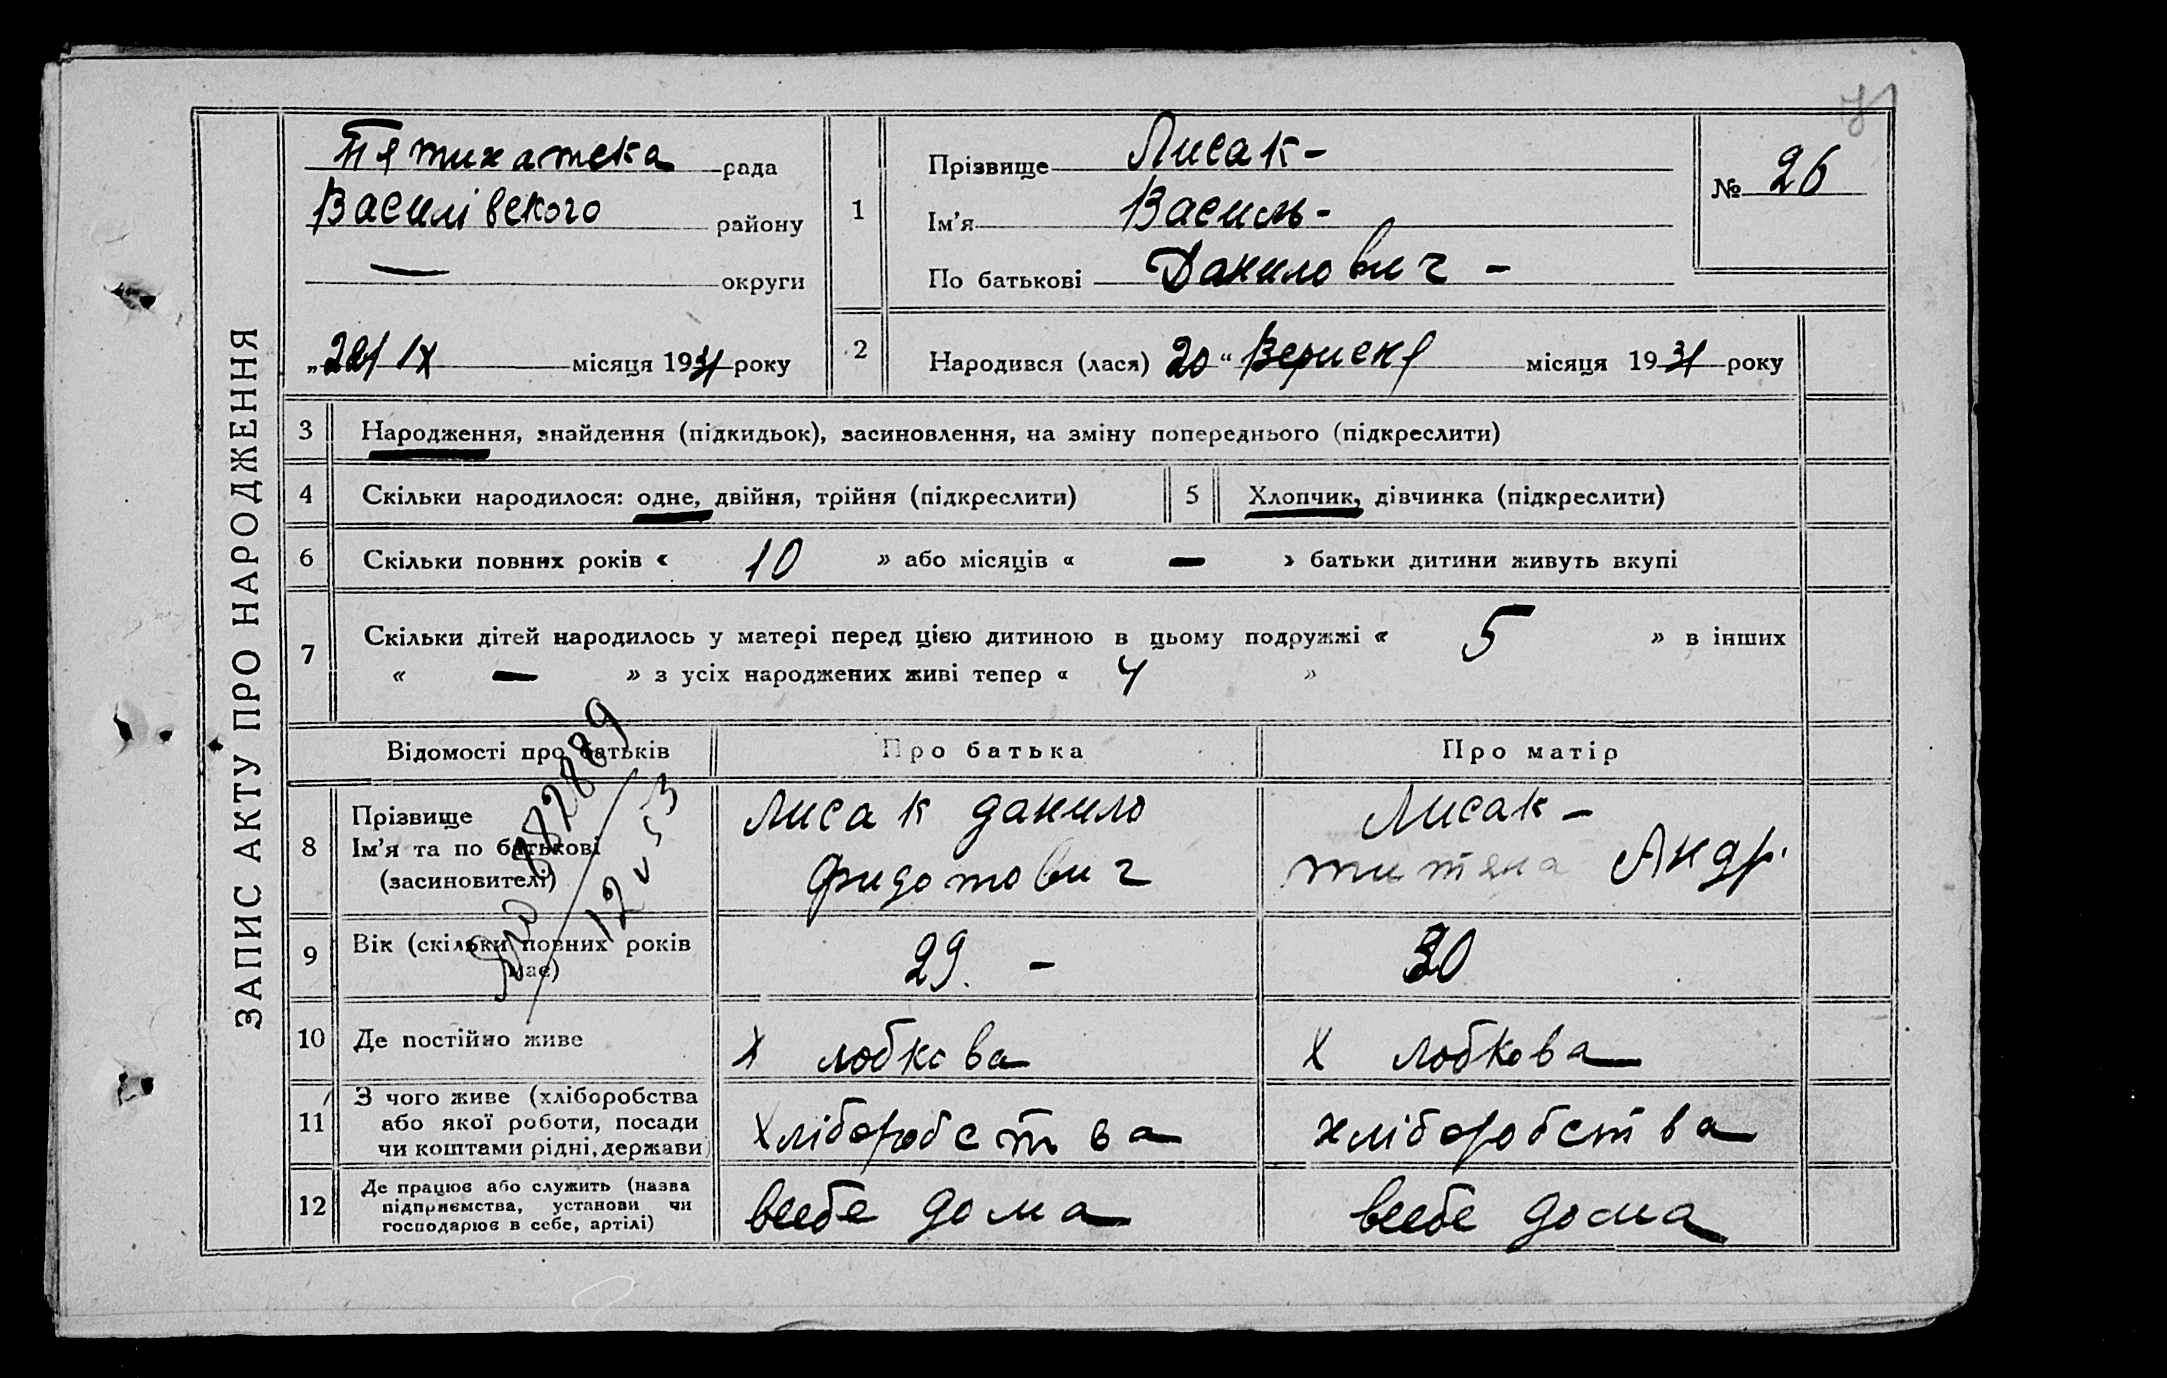 ЗАПИС АКТУ ПРО НАРОДЖЕННЯ
Пятихатска рада
Василівского району
— округи
„22/IX місяця 1931 року
1
Прізвище Лисак-
Ім'я Василь-
По батькові Данилович -
№ 26
2
Народився (лася) 20 " Вересня місяця 1931 року
3 Народження, знайдення (підкидьок), засиновлення, на зміну попереднього (підкреслити)
4 Скільки народилося: одне, двійня, трійня (підкреслити)
5 Хлопчик, дівчинка (підкреслити)
6 Скільки повних років « 10 » або місяців « — » батьки дитини живуть вкупі
7 Скільки дітей народилось у матері перед цією дитиною в цьому подружжі « 5 » в інших
« — » з усіх народжених живі тепер « 4 »
Відомості про батьків Про батька Про матір
8 Прізвище
Ім'я та по батькові
(засиновителі)
Лисак данило
Фидотович
Лисак -
титяна Андр.
9 Вік (скільки повних років
має)
29. -
30
10 Де постійно живе
Х лобкова
Х лобкова
11 З чого живе (хліборобства
або якої роботи, посади
чи коштами рідні, держави)
Хліборобства
хліборобства
12 Де працює або служить (назва
підприємства, установи чи
господарює в себе, артілі)
всебе дома
всебе дома
12 V 53